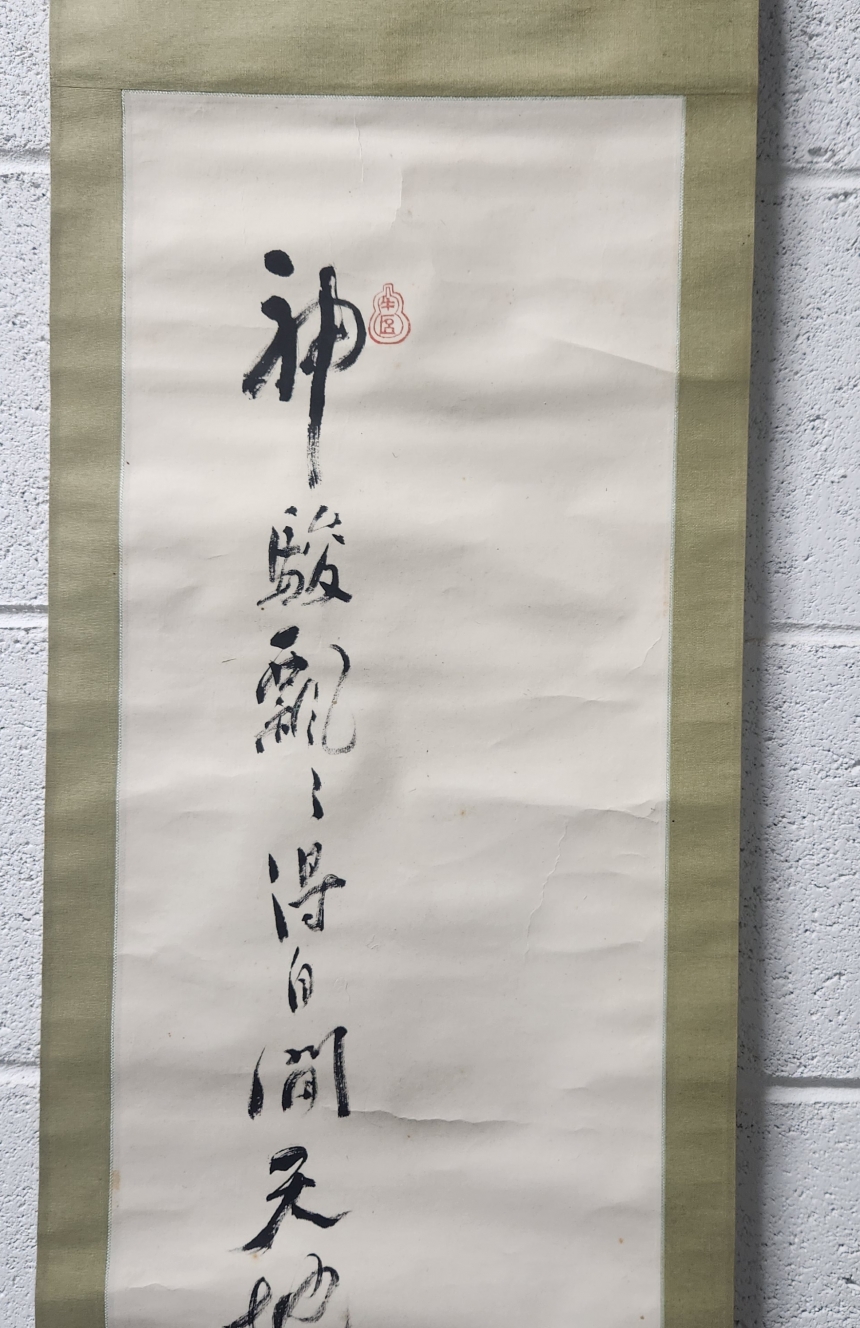 神駿飄〻得自閒天地